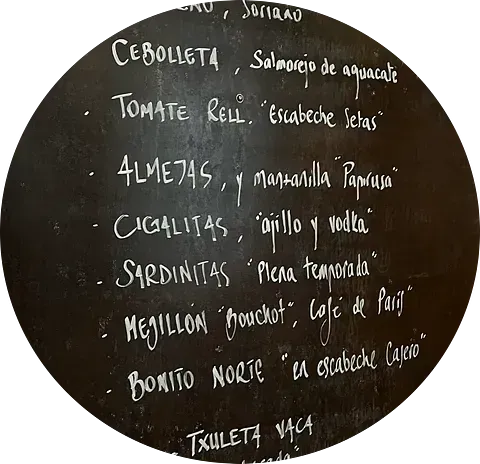 , Soriano
CEBOLLETA , Salmorejo de aguacate
- TOMATE RELL. "Escabeche Setas"
- ALMEJAS , y manzanilla "Paprusa"
- CIGALITAS , "ajillo y vodka"
- SARDINITAS "Plena temporada"
- MEJILLÓN "Bouchot", Café de París"
- BONITO NORTE "en escabeche Casero"
TXULETA VACA